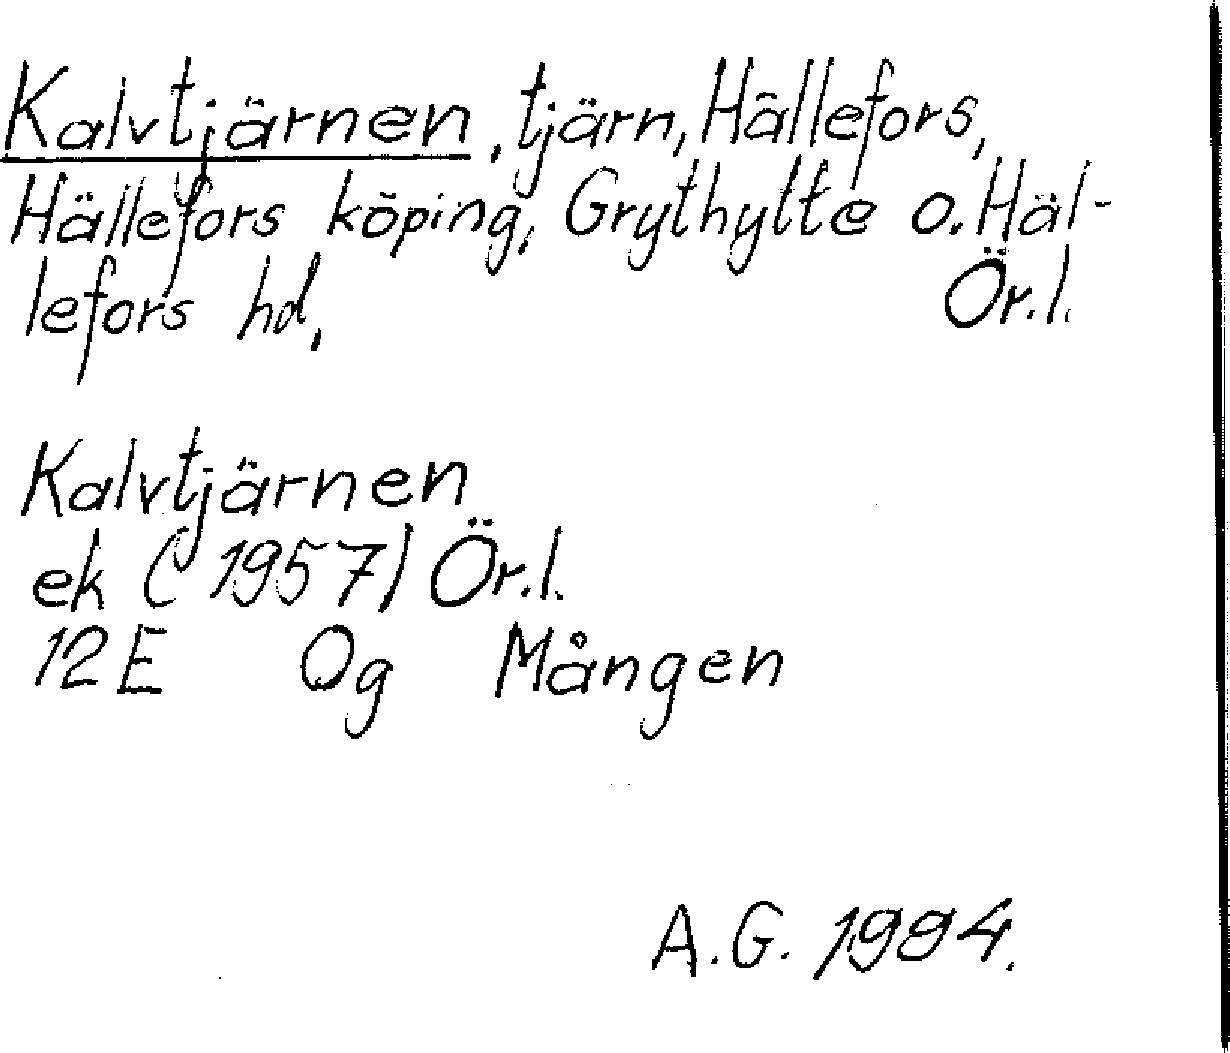 Kalvtjärnen, tjärn, Hällefors,
Hällefors köping, Grythytte o. Häl-
lefors hd, Ör.l.
Kalvtjärnen
ek (1957) Ör.l.
12E 0g Mången
A.G. 1994.